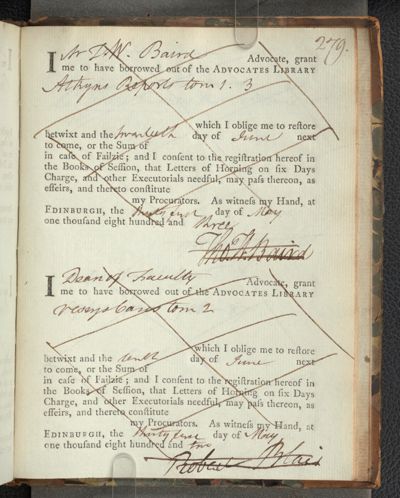 279.
I Mr T. W. Baird Advocate, grant
me to have borrowed out of the ADVOCATES LIBRARY
Atkyns Reports tom 1. 3
which I oblige me to reſtore
betwixt and the twentieth day of June next
to come, or the Sum of
in caſe of Failzie; and I conſent to the regiſtration hereof in
the Books of Seſſion, that Letters of Horning on ſix Days
Charge, and other Executorials needful, may paſs thereon, as
effeirs, and thereto conſtitute
my Procurators. As witneſs my Hand, at
EDINBURGH, the thirty first day of May
one thouſand eight hundred and three
Tho. W. Baird
I Dean of Faculty Advocate, grant
me to have borrowed out of the ADVOCATES LIBRARY
Veseys Cases tom 2
which I oblige me to reſtore
betwixt and the tenth day of June next
to come, or the Sum of
in caſe of Failzie; and I conſent to the regiſtration hereof in
the Books of Seſſion, that Letters of Horning on ſix Days
Charge, and other Executorials needful, may paſs thereon, as
effeirs, and thereto conſtitute
my Procurators. As witneſs my Hand, at
EDINBURGH, the thirty first day of May
one thouſand eight hundred and two
Robert Blair